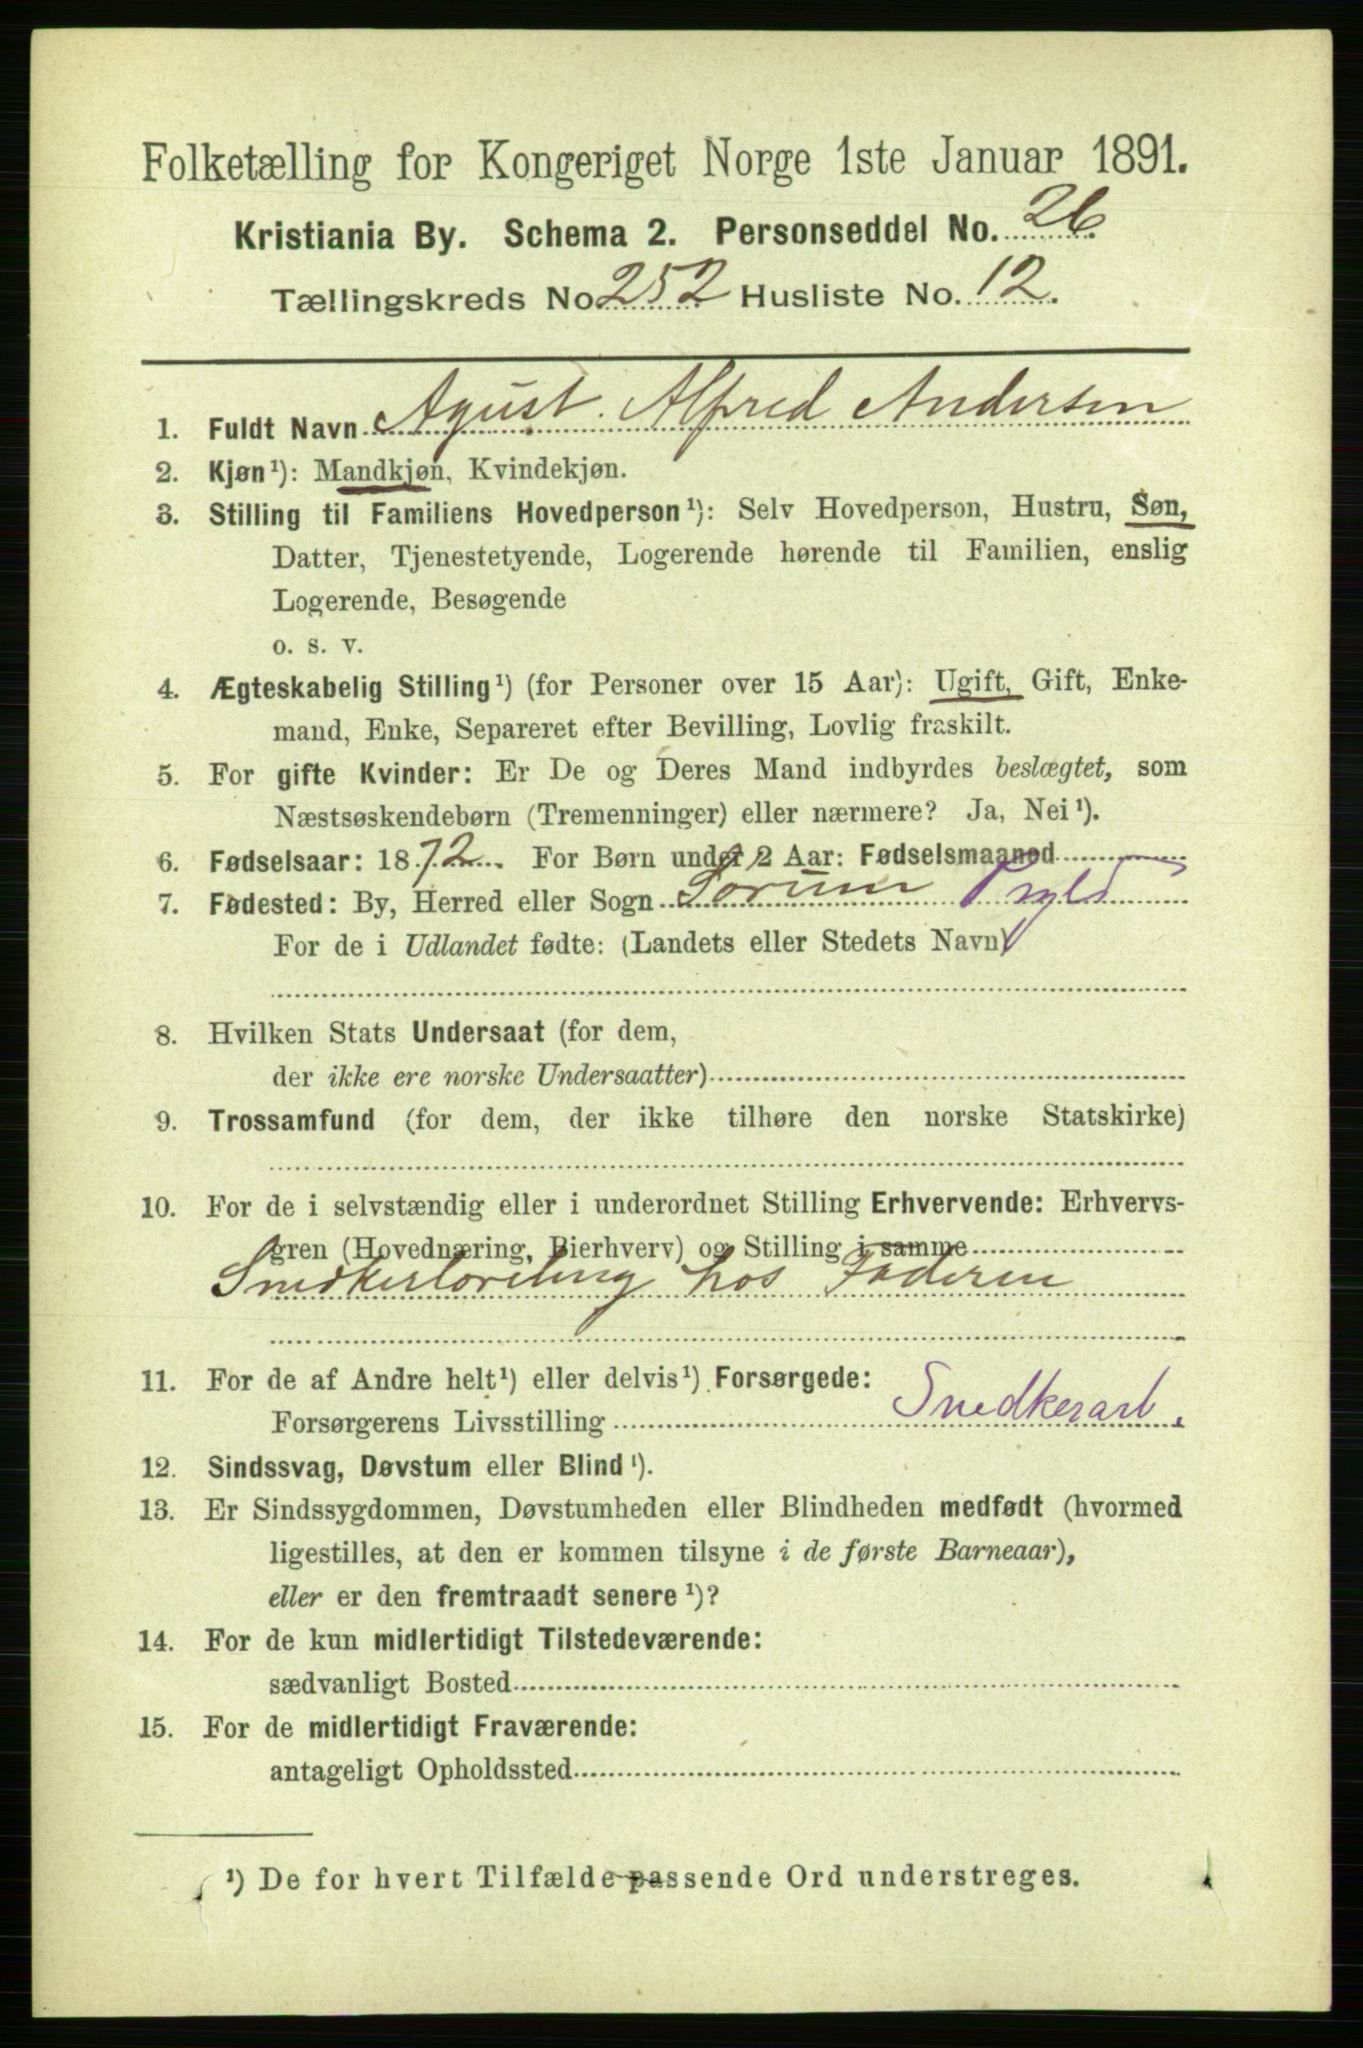 Folketælling for Kongeriget Norge 1ste Januar 1891.
Kristiania By. Schema 2. Personseddel No. 26
Tællingskreds No. 252 Husliste No. 12.
1. Fuldt Navn Agust Alfred Andersen
2. Kjøn¹): Mandkjøn, Kvindekjøn.
3. Stilling til Familiens Hovedperson¹): Selv Hovedperson, Hustru, Søn,
Datter, Tjenestetyende, Logerende hørende til Familien, enslig
Logerende, Besøgende
o. s. v.
4. Ægteskabelig Stilling¹) (for Personer over 15 Aar): Ugift, Gift, Enke-
mand, Enke, Separeret efter Bevilling, Lovlig fraskilt.
5. For gifte Kvinder: Er De og Deres Mand indbyrdes beslægtet, som
Næstsøskendebørn (Tremenninger) eller nærmere? Ja, Nei¹).
6. Fødselsaar: 1872. For Børn under 2 Aar: Fødselsmaaned
7. Fødested: By, Herred eller Sogn Sørum
For de i Udlandet fødte: (Landets eller Stedets Navn)
8. Hvilken Stats Undersaat (for dem,
der ikke ere norske Undersaatter)
9. Trossamfund (for dem, der ikke tilhøre den norske Statskirke)
10. For de i selvstændig eller i underordnet Stilling Erhvervende: Erhvervs-
gren (Hovednæring, Bierhverv) og Stilling i samme
Snedkerlæreling hos Faderen
11. For de af Andre helt¹) eller delvis¹) Forsørgede:
Forsørgerens Livsstilling Snedkerarb.
12. Sindssvag, Døvstum eller Blind¹).
13. Er Sindssygdommen, Døvstumheden eller Blindheden medfødt (hvormed
ligestilles, at den er kommen tilsyne i de første Barneaar),
eller er den fremtraadt senere¹)?
14. For de kun midlertidigt Tilstedeværende:
sædvanligt Bosted
15. For de midlertidigt Fraværende:
antageligt Opholdssted
¹) De for hvert Tilfælde passende Ord understreges.